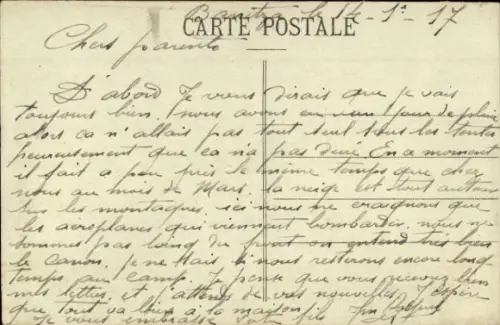 le 14-1-17
CARTE POSTALE
Chers parents
D'abord Je vous dirais que je vais
toujours bien, nous avons eu un jour de pluie
alors ca n'allais pas tout seul sous les tentes
heureusement que ca n'a pas duré. En ce moment
il fait a peu près le même temps que chez
nous au mois de Mars, la neige est tout autour
sur les montagnes, ici nous ne craignons que
les aeroplanes qui viennent bombarder, nous ne
sommes pas loing du front on entend très bien
le canon. Je ne sais si nous resterons encore long
temps au camp. Je pense que vous recevez bien
mes lettres, et j'attends de vos nouvelles J'espère
que tout va bien a la maison.
Je vous embrasse Votre fils